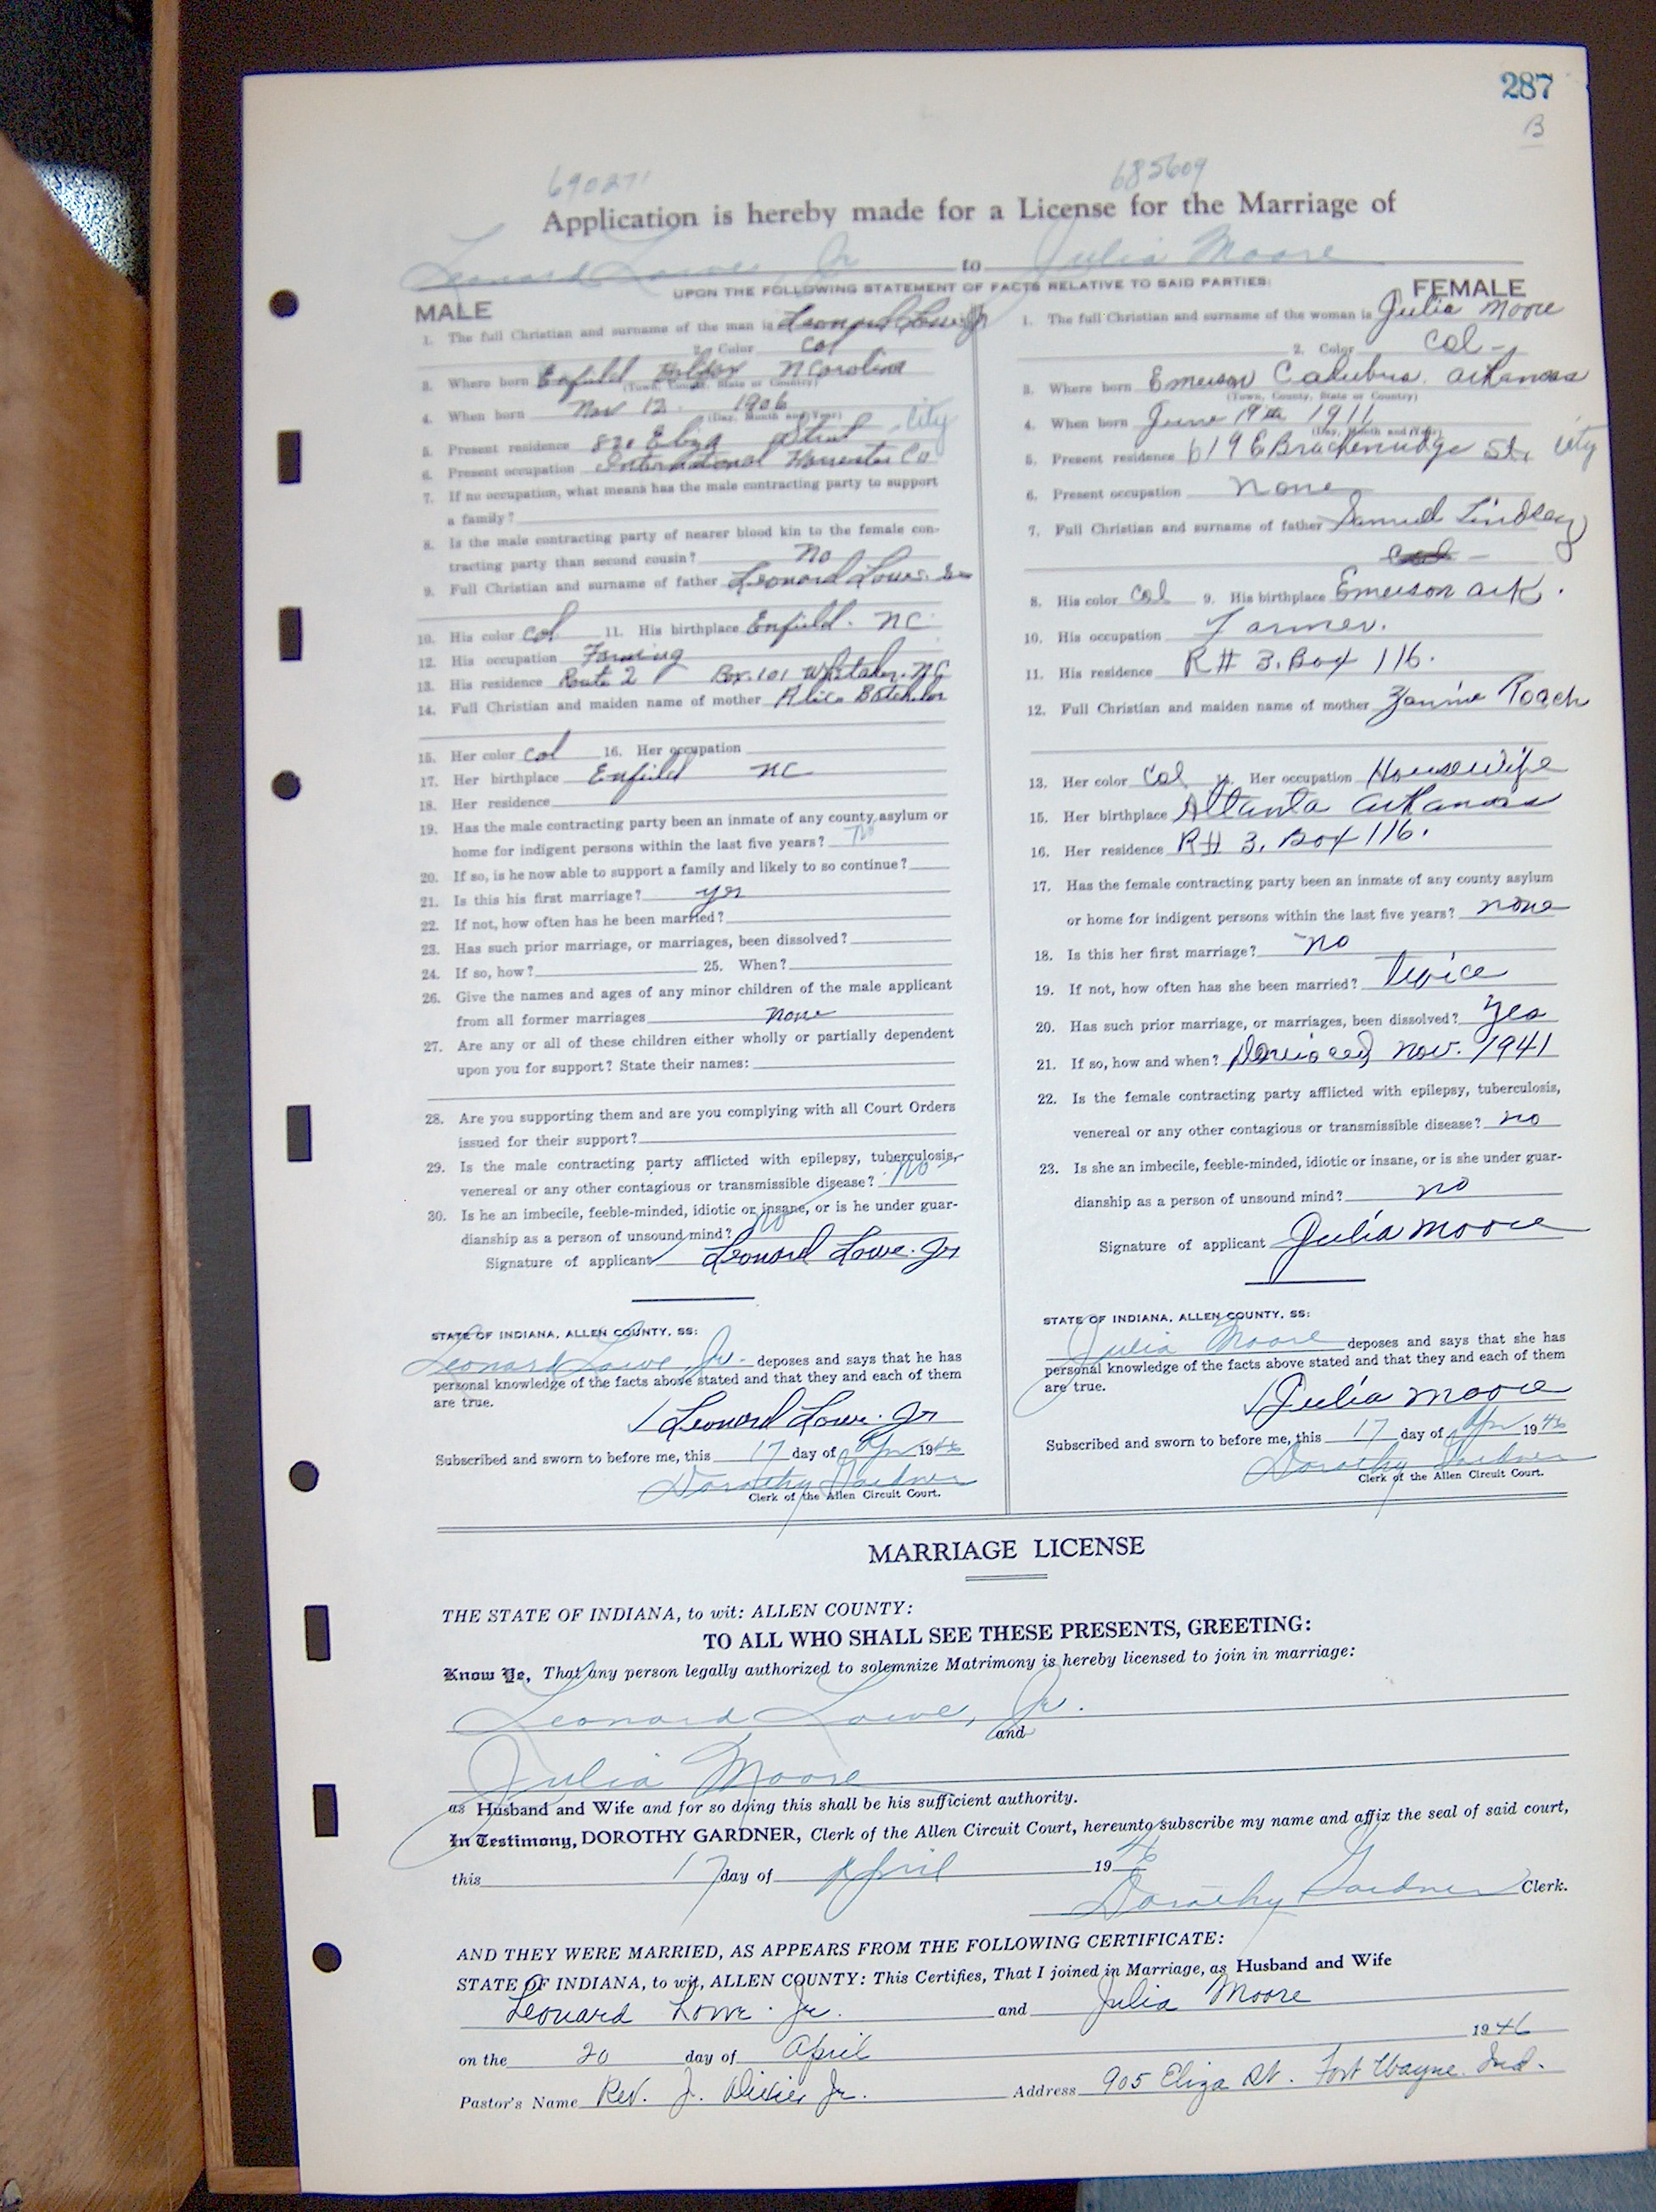 287
B
690271
685609
Application is hereby made for a License for the Marriage of
Leonard Lowe, Jr. to Julia Moore
UPON THE FOLLOWING STATEMENT OF FACTS RELATIVE TO SAID PARTIES:
MALE
1. The full Christian and surname of the man is Leonard Lowe Jr
2. Color Col
3. Where born Enfield Halifax N Carolina
(Town, County, State or Country)
4. When born Nov 12 1906
(Day, Month and Year)
5. Present residence 820 Eliza Street City
6. Present occupation International Harvester Co
7. If no occupation, what means has the male contracting party to support
a family?
8. Is the male contracting party of nearer blood kin to the female con-
tracting party than second cousin? No
9. Full Christian and surname of father Leonard Lowe. Sr
10. His color Col 11. His birthplace Enfield. NC
12. His occupation Farming
13. His residence Route 2 Box 101 Whitaker. NC
14. Full Christian and maiden name of mother Alice Batchelor
15. Her color Col 16. Her occupation
17. Her birthplace Enfield NC
18. Her residence
19. Has the male contracting party been an inmate of any county asylum or
home for indigent persons within the last five years? No
20. If so, is he now able to support a family and likely to so continue?
21. Is this his first marriage? yes
22. If not, how often has he been married?
23. Has such prior marriage, or marriages, been dissolved?
24. If so, how? 25. When?
26. Give the names and ages of any minor children of the male applicant
from all former marriages none
27. Are any or all of these children either wholly or partially dependent
upon you for support? State their names:
28. Are you supporting them and are you complying with all Court Orders
issued for their support?
29. Is the male contracting party afflicted with epilepsy, tuberculosis,
venereal or any other contagious or transmissible disease? No
30. Is he an imbecile, feeble-minded, idiotic or insane, or is he under guar-
dianship as a person of unsound mind? No
Signature of applicant Leonard Lowe. Jr
STATE OF INDIANA, ALLEN COUNTY, SS:
Leonard Lowe, Jr. deposes and says that he has
personal knowledge of the facts above stated and that they and each of them
are true.
Leonard Lowe. Jr
Subscribed and sworn to before me, this 17 day of Apr 1946
Dorothy Gardner
Clerk of the Allen Circuit Court.
FEMALE
1. The full Christian and surname of the woman is Julia Moore
2. Color Col -
3. Where born Emerson Arkansas
(Town, County, State or Country)
4. When born June 19th 1911
(Day, Month and Year)
5. Present residence 619 E Brackenridge St, City
6. Present occupation None
7. Full Christian and surname of father Samuel Lindsey
8. His color Col 9. His birthplace Emerson Ark.
10. His occupation Farmer.
11. His residence R# 3. Box 116.
12. Full Christian and maiden name of mother Zannie Roach
13. Her color Col 14. Her occupation Housewife
15. Her birthplace Atlanta Arkansas
16. Her residence R# 3. Box 116.
17. Has the female contracting party been an inmate of any county asylum
or home for indigent persons within the last five years? none
18. Is this her first marriage? no
19. If not, how often has she been married? twice
20. Has such prior marriage, or marriages, been dissolved? yes
21. If so, how and when? Nov. 1941
22. Is the female contracting party afflicted with epilepsy, tuberculosis,
venereal or any other contagious or transmissible disease? no
23. Is she an imbecile, feeble-minded, idiotic or insane, or is she under guar-
dianship as a person of unsound mind? no
Signature of applicant Julia Moore
STATE OF INDIANA, ALLEN COUNTY, SS:
Julia Moore deposes and says that she has
personal knowledge of the facts above stated and that they and each of them
are true.
Julia Moore
Subscribed and sworn to before me, this 17 day of Apr 1946
Dorothy Gardner
Clerk of the Allen Circuit Court.
MARRIAGE LICENSE
THE STATE OF INDIANA, to wit: ALLEN COUNTY:
TO ALL WHO SHALL SEE THESE PRESENTS, GREETING:
Know Ye, That any person legally authorized to solemnize Matrimony is hereby licensed to join in marriage:
Leonard Lowe, Jr.
and
Julia Moore
as Husband and Wife and for so doing this shall be his sufficient authority.
In Testimony, DOROTHY GARDNER, Clerk of the Allen Circuit Court, hereunto subscribe my name and affix the seal of said court,
this 17 day of April 1946
Dorothy Gardner Clerk.
AND THEY WERE MARRIED, AS APPEARS FROM THE FOLLOWING CERTIFICATE:
STATE OF INDIANA, to wit, ALLEN COUNTY: This Certifies, That I joined in Marriage, as Husband and Wife
Leonard Lowe. Jr. and Julia Moore
on the 20 day of April 1946
Pastor's Name Rev. J. Jr. Address 905 Eliza St. Fort Wayne. Ind.